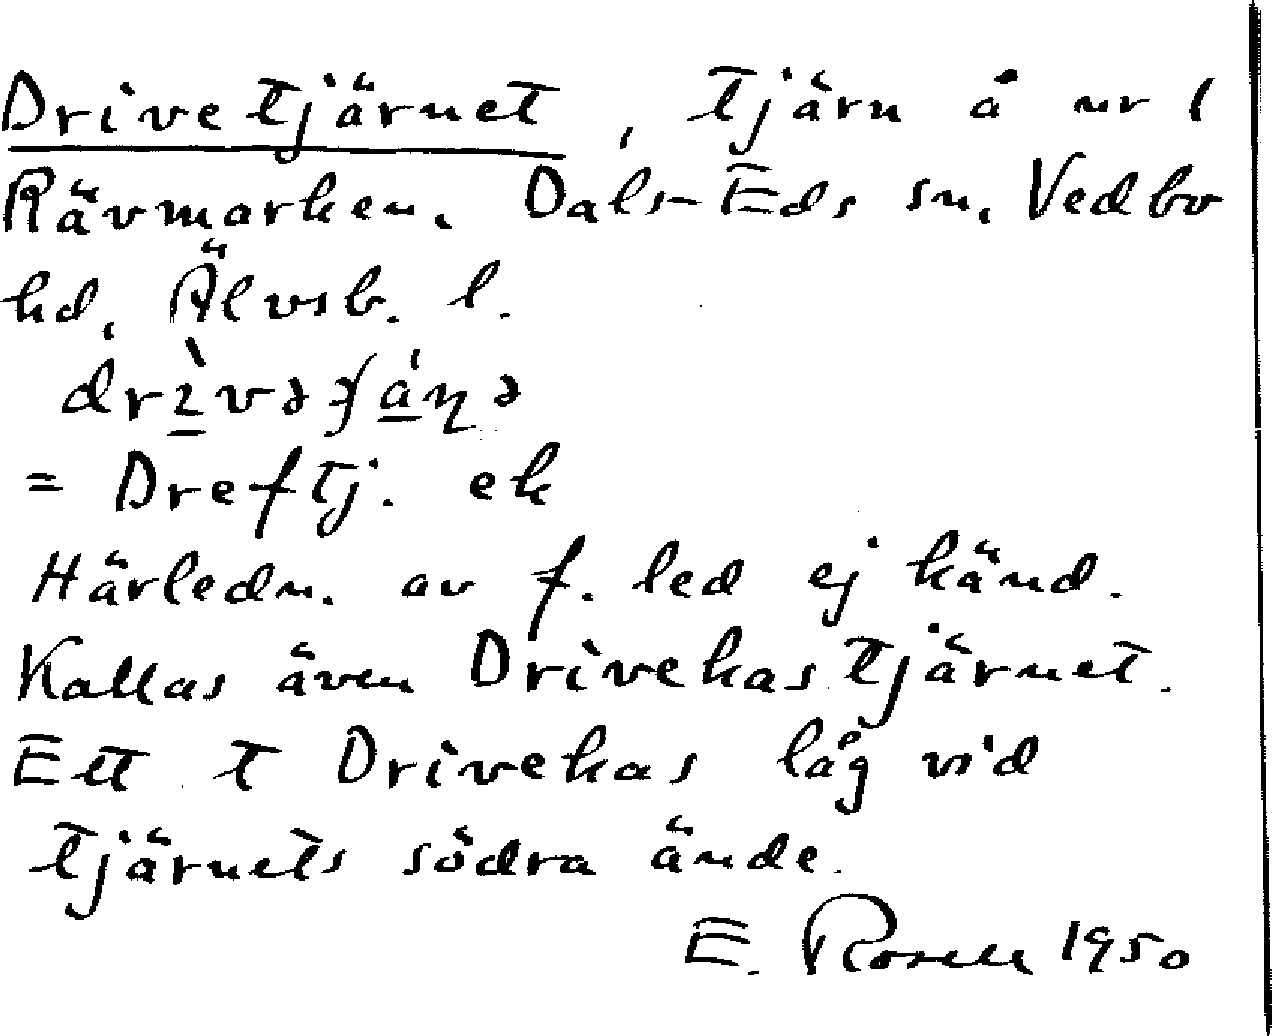 Drivetjärnet, tjärn å nr 1
Rävmarken. Dals-Eds sn, Vedbo
hd, Älvsb. l.
= Dreftj. ek
Härledn. av f. led ej känd.
Kallas även Drivekastjärnet.
Ett t Drivekas låg vid
tjärnets södra ände.
E. Rosell 1950